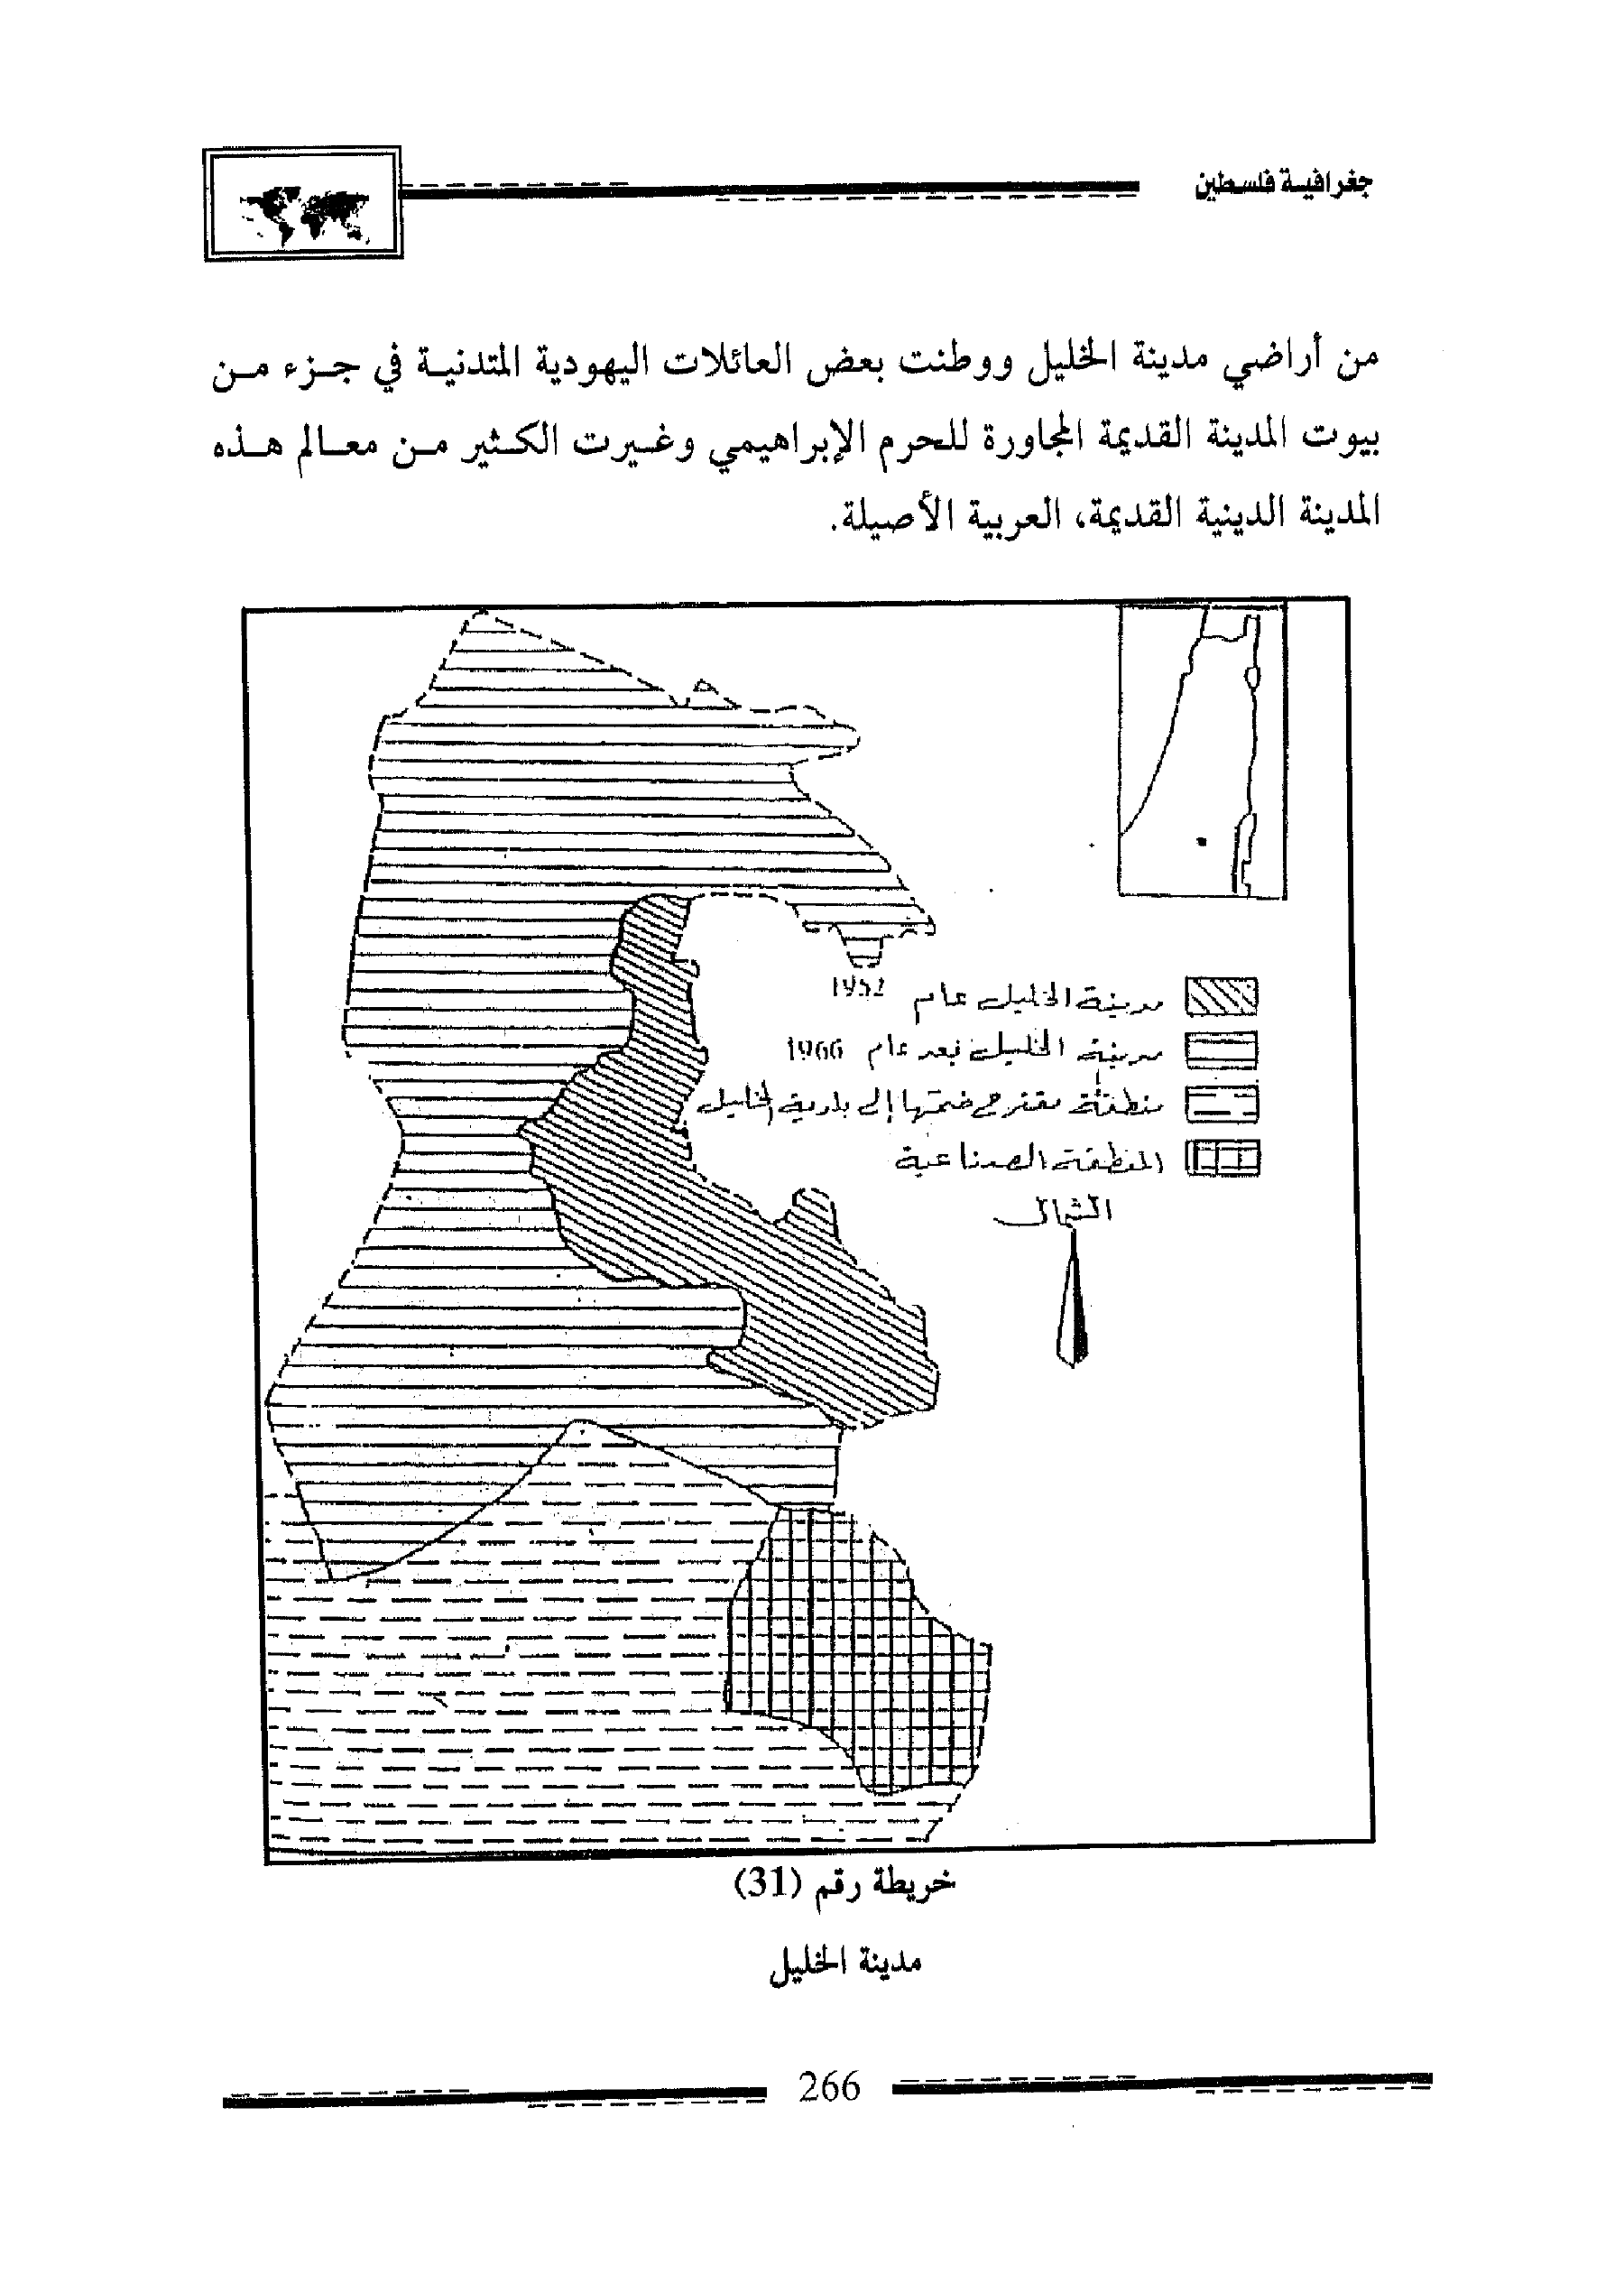 جغرافية فلسطين
من أراضي مدينة الخليل ووطنت بعض العائلات اليهودية المتدنية في جزء من
بيوت المدينة القديمة المجاورة للحرم الإبراهيمي وغيرت الكثير من معالم هذه
المدينة الدينية القديمة، العربية الأصيلة.
مدينة الخليل عام 1952
مدينة الخليل بعد عام 1966
منطقة مقترح ضمها إلى بلدية الخليل
المنطقة الصناعية
الشمال
خريطة رقم (31)
مدينة الخليل
266